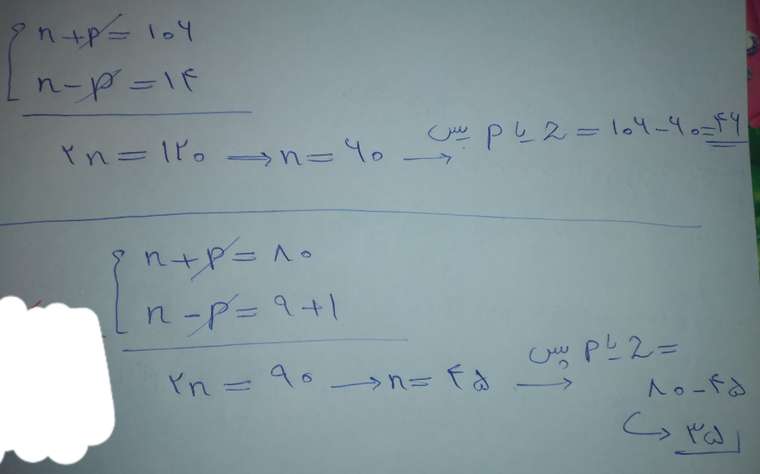 n+p=۱۰۶
n-p=۱۴
۲n=۱۲۰ → n=۶۰ → پس p یا Z = ۱۰۶-۶۰=۴۶
n+p=۸۰
n-p=۹+۱
۲n=۹۰ → n=۴۵ → پس p یا Z =
۸۰-۴۵
↪ ۳۵